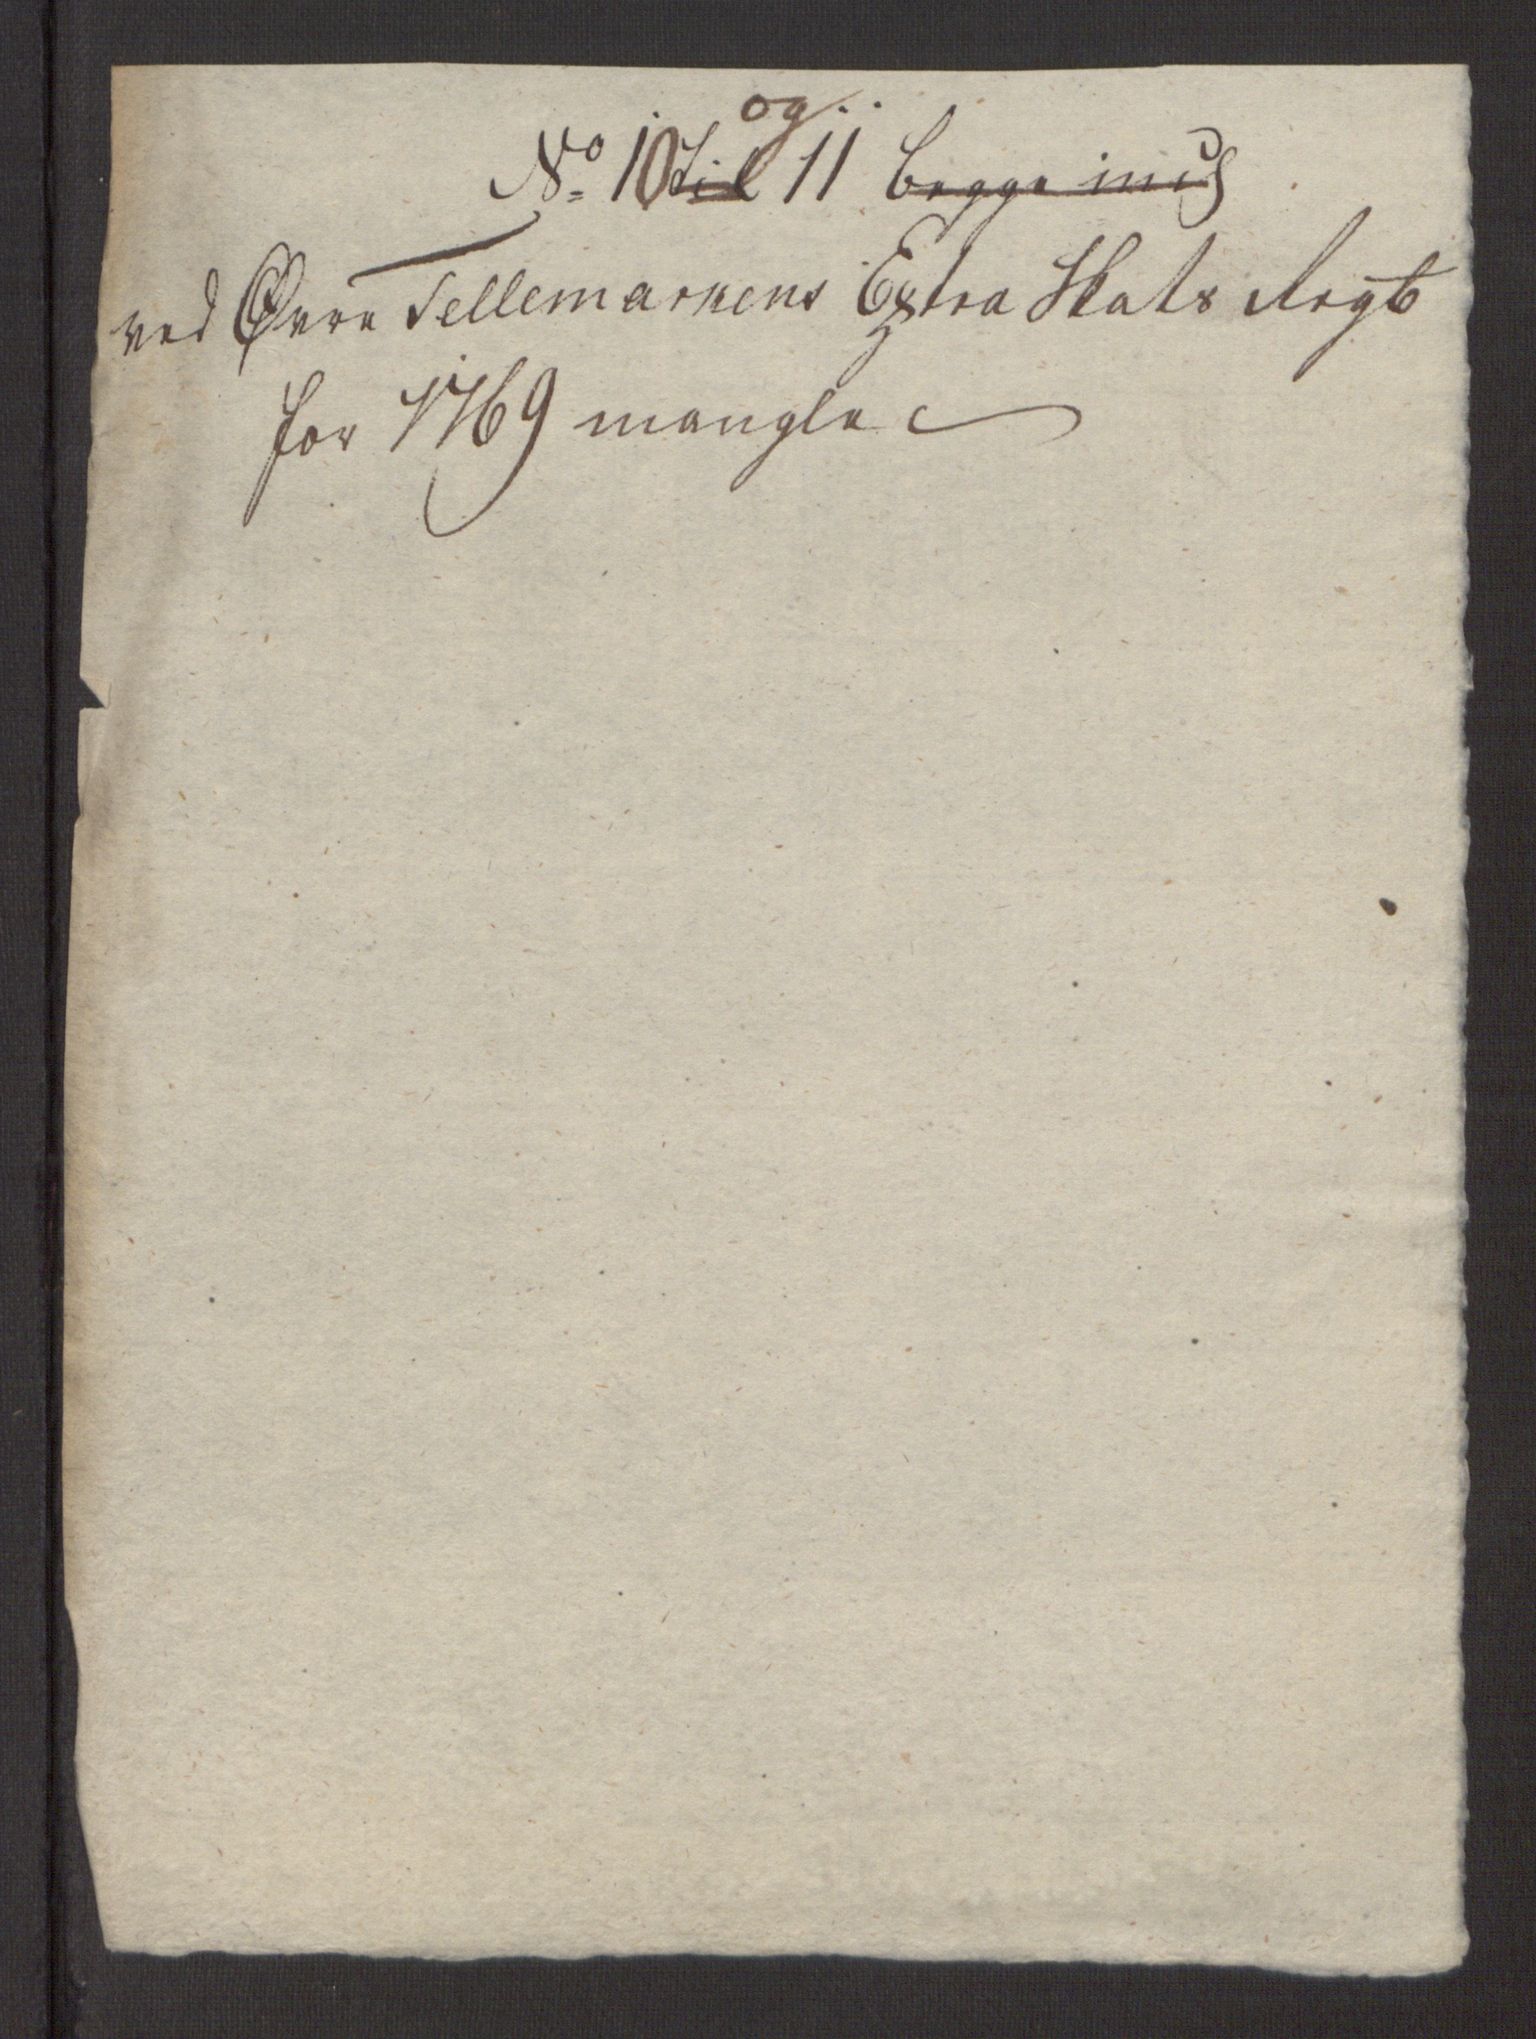 og
No 10 til 11 begge incl
ved Øvre Tellemarkens Extra Skats Regb
for 1769 mangle